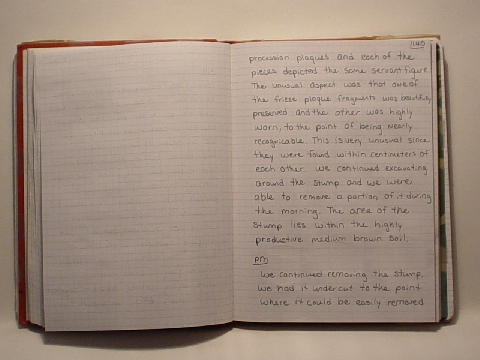 140
procession plaques and each of the
pieces depicted the same servant figure.
The unusual aspect was that one of
the frieze plaque fragments was beautifully
preserved and the other was highly
worn, to the point of being nearly
recognicable. This is very unusual since
they were found within centimeters of
each other. We continued excavating
around the stump and we were
able to remove a portion of it during
the morning. The area of the
stump lies within the highly
productive medium brown soil.
PM
We continued removing the stump.
We had it undercut to the point
where it could be easily removed